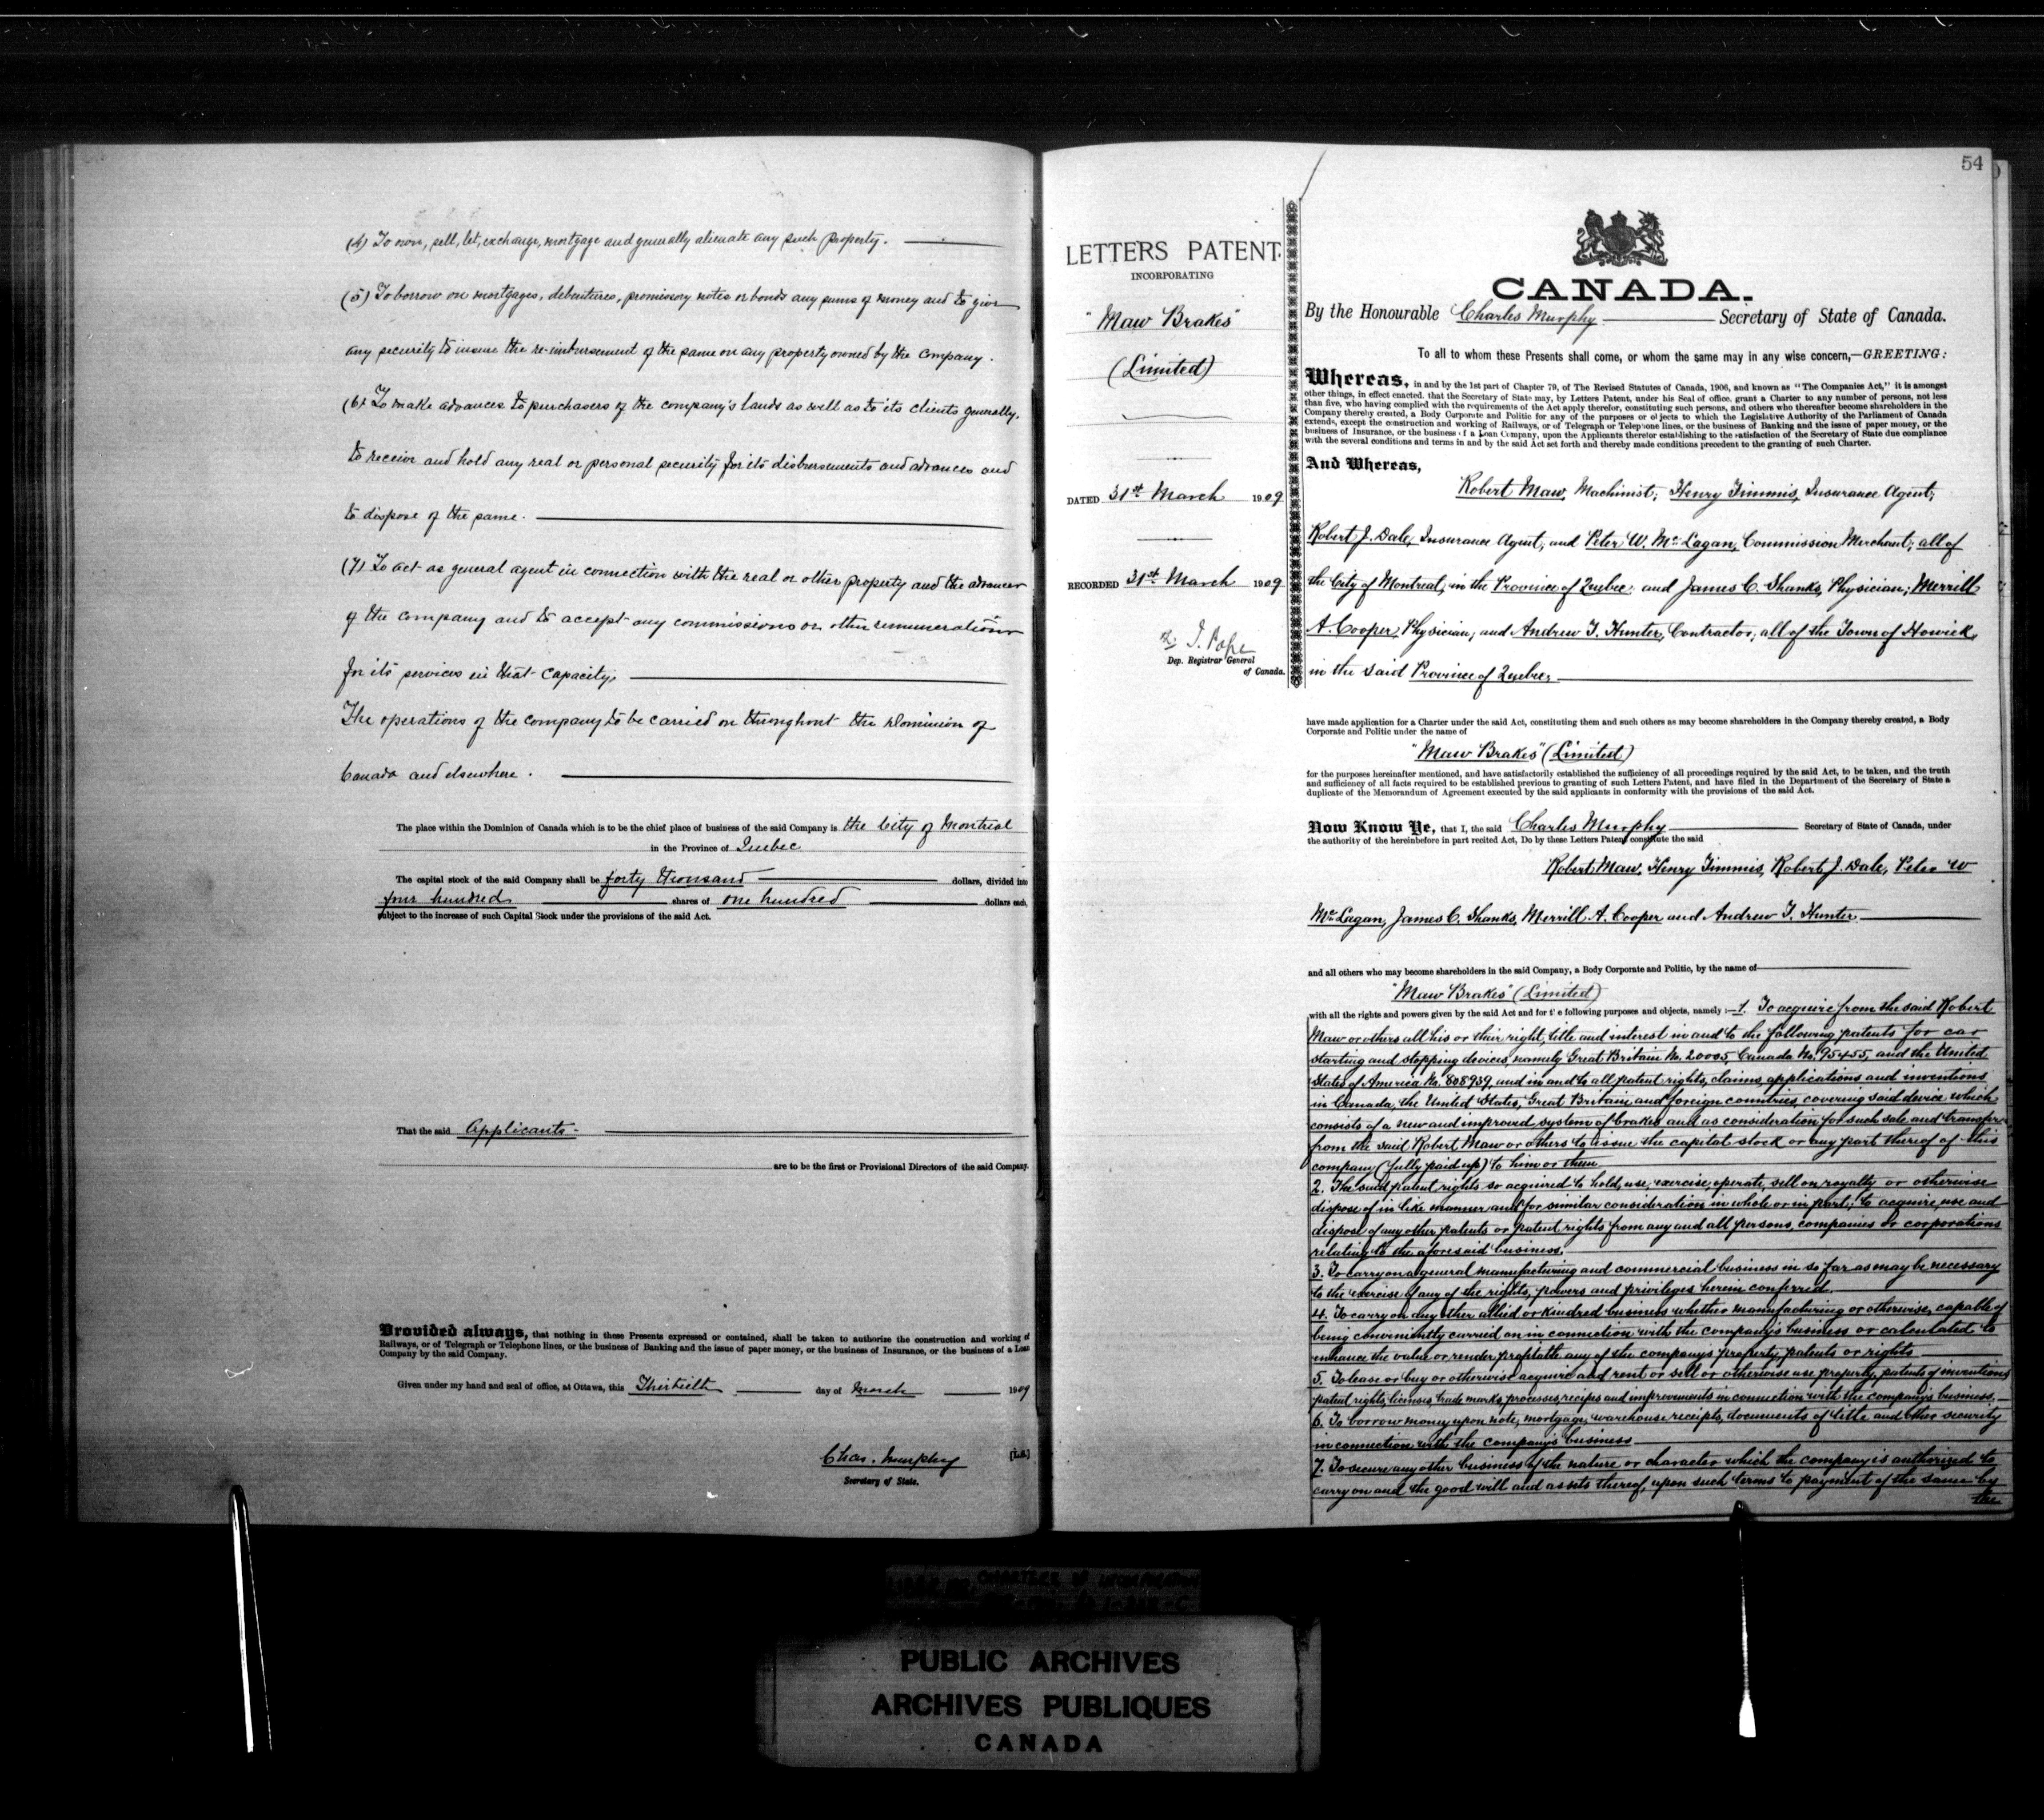 (4) To own, sell, let, exchange, mortgage and generally alienate any such property.
(5) To borrow on mortgages, debentures, promissory notes or bonds any sums of money and to give
any security to insure the re-imbursement of the same on any property owned by the company.
(6) To make advances to purchasers of the company's lands as well as to its clients generally,
to receive and hold any real or personal security for its disbursements and advances and
to dispose of the same.
(7) To act as general agent in connection with the real or other property and the advances
of the company and to accept any commissions or other remunerations
for its services in that capacity.
The operations of the company to be carried on throughout the Dominion of
Canada and elsewhere.
The place within the Dominion of Canada which is to be the chief place of business of the said Company is the City of Montreal
in the Province of Quebec
The capital stock of the said Company shall be forty thousand dollars, divided into
four hundred shares of one hundred dollars each,
subject to the increase of such Capital Stock under the provisions of the said Act.
That the said Applicants
are to be the first or Provisional Directors of the said Company.
Provided always, that nothing in these Presents expressed or contained, shall be taken to authorize the construction and working of
Railways, or of Telegraph or Telephone lines, or the business of Banking and the issue of paper money, or the business of Insurance, or the business of a Loan
Company by the said Company.
Given under my hand and seal of office, at Ottawa, this Thirtieth day of March 1909
Chas. Murphy [L.S.]
Secretary of State.
54
LETTERS PATENT
INCORPORATING
"Maw Brakes"
(Limited)
DATED 31st March 1909
RECORDED 31st March 1909
Pope
Dep. Registrar General
of Canada.
CANADA.
By the Honourable Charles Murphy Secretary of State of Canada.
To all to whom these Presents shall come, or whom the same may in any wise concern,—GREETING:
Whereas, in and by the 1st part of Chapter 79, of The Revised Statutes of Canada, 1906, and known as "The Companies Act," it is amongst
other things, in effect enacted, that the Secretary of State may, by Letters Patent, under his Seal of office, grant a Charter to any number of persons, not less
than five, who having complied with the requirements of the Act apply therefor, constituting such persons, and others who thereafter become shareholders in the
Company thereby created, a Body Corporate and Politic for any of the purposes or objects to which the Legislative Authority of the Parliament of Canada
extends, except the construction and working of Railways, or of Telegraph or Telephone lines, or the business of Banking and the issue of paper money, or the
business of Insurance, or the business of a Loan Company, upon the Applicants therefor establishing to the satisfaction of the Secretary of State due compliance
with the several conditions and terms in and by the said Act set forth and thereby made conditions precedent to the granting of such Charter.
And Whereas,
Robert Maw, Machinist; Henry Timmis, Insurance Agent;
Robert J. Dale, Insurance Agent, and Peter W. McLagan, Commission Merchant; all of
the City of Montreal, in the Province of Quebec; and James C. Shanks, Physician; Merrill
A. Cooper, Physician, and Andrew T. Hunter, Contractor; all of the Town of Howick,
in the said Province of Quebec,
have made application for a Charter under the said Act, constituting them and such others as may become shareholders in the Company thereby created, a Body
Corporate and Politic under the name of
"Maw Brakes" (Limited)
for the purposes hereinafter mentioned, and have satisfactorily established the sufficiency of all proceedings required by the said Act, to be taken, and the truth
and sufficiency of all facts required to be established previous to granting of such Letters Patent, and have filed in the Department of the Secretary of State a
duplicate of the Memorandum of Agreement executed by the said applicants in conformity with the provisions of the said Act.
Now Know Ye, that I, the said Charles Murphy Secretary of State of Canada, under
the authority of the hereinbefore in part recited Act, Do by these Letters Patent constitute the said
Robert Maw, Henry Timmis, Robert J. Dale, Peter W
McLagan, James C. Shanks, Merrill A. Cooper and Andrew T. Hunter
and all others who may become shareholders in the said Company, a Body Corporate and Politic, by the name of
"Maw Brakes" (Limited)
with all the rights and powers given by the said Act and for the following purposes and objects, namely :—1. To acquire from the said Robert
Maw or others all his or their right, title and interest in and to the following patents for car
starting and stopping devices, namely Great Britain No. 20005 Canada No. 95455, and the United
States of America No. 808939, and in and to all patent rights, claims, applications and inventions
in Canada, the United States, Great Britain, and foreign countries, covering said device which
consists of a new and improved system of brakes and as consideration for such sale and transfer
from the said Robert Maw or others to issue the capital stock or any part thereof of this
company (fully paid up) to him or them.
2. The said patent rights so acquired to hold, use, exercise, operate, sell on royalty or otherwise
dispose of in like manner and for similar consideration in whole or in part; to acquire, use and
dispose of any other patents or patent rights from any and all persons, companies or corporations
relating to the aforesaid business.
3. To carry on a general manufacturing and commercial business in so far as may be necessary
to the exercise of any of the rights, powers and privileges herein conferred.
4. To carry on any other allied or kindred business whether manufacturing or otherwise, capable of
being conveniently carried on in connection with the company's business or calculated to
enhance the value or render profitable any of the company's property, patents or rights
5. To lease or buy or otherwise acquire and rent or sell or otherwise use property, patents of inventions
patent rights, licenses, trade marks, processes, recipes and improvements in connection with the company's business.
6. To borrow money upon note, mortgage, warehouse receipts, documents of title and other security
in connection with the company's business
7. To secure any other business of the nature or character which the company is authorized to
carry on and the good will and assets thereof, upon such terms to payment of the same by
the
PUBLIC ARCHIVES
ARCHIVES PUBLIQUES
CANADA